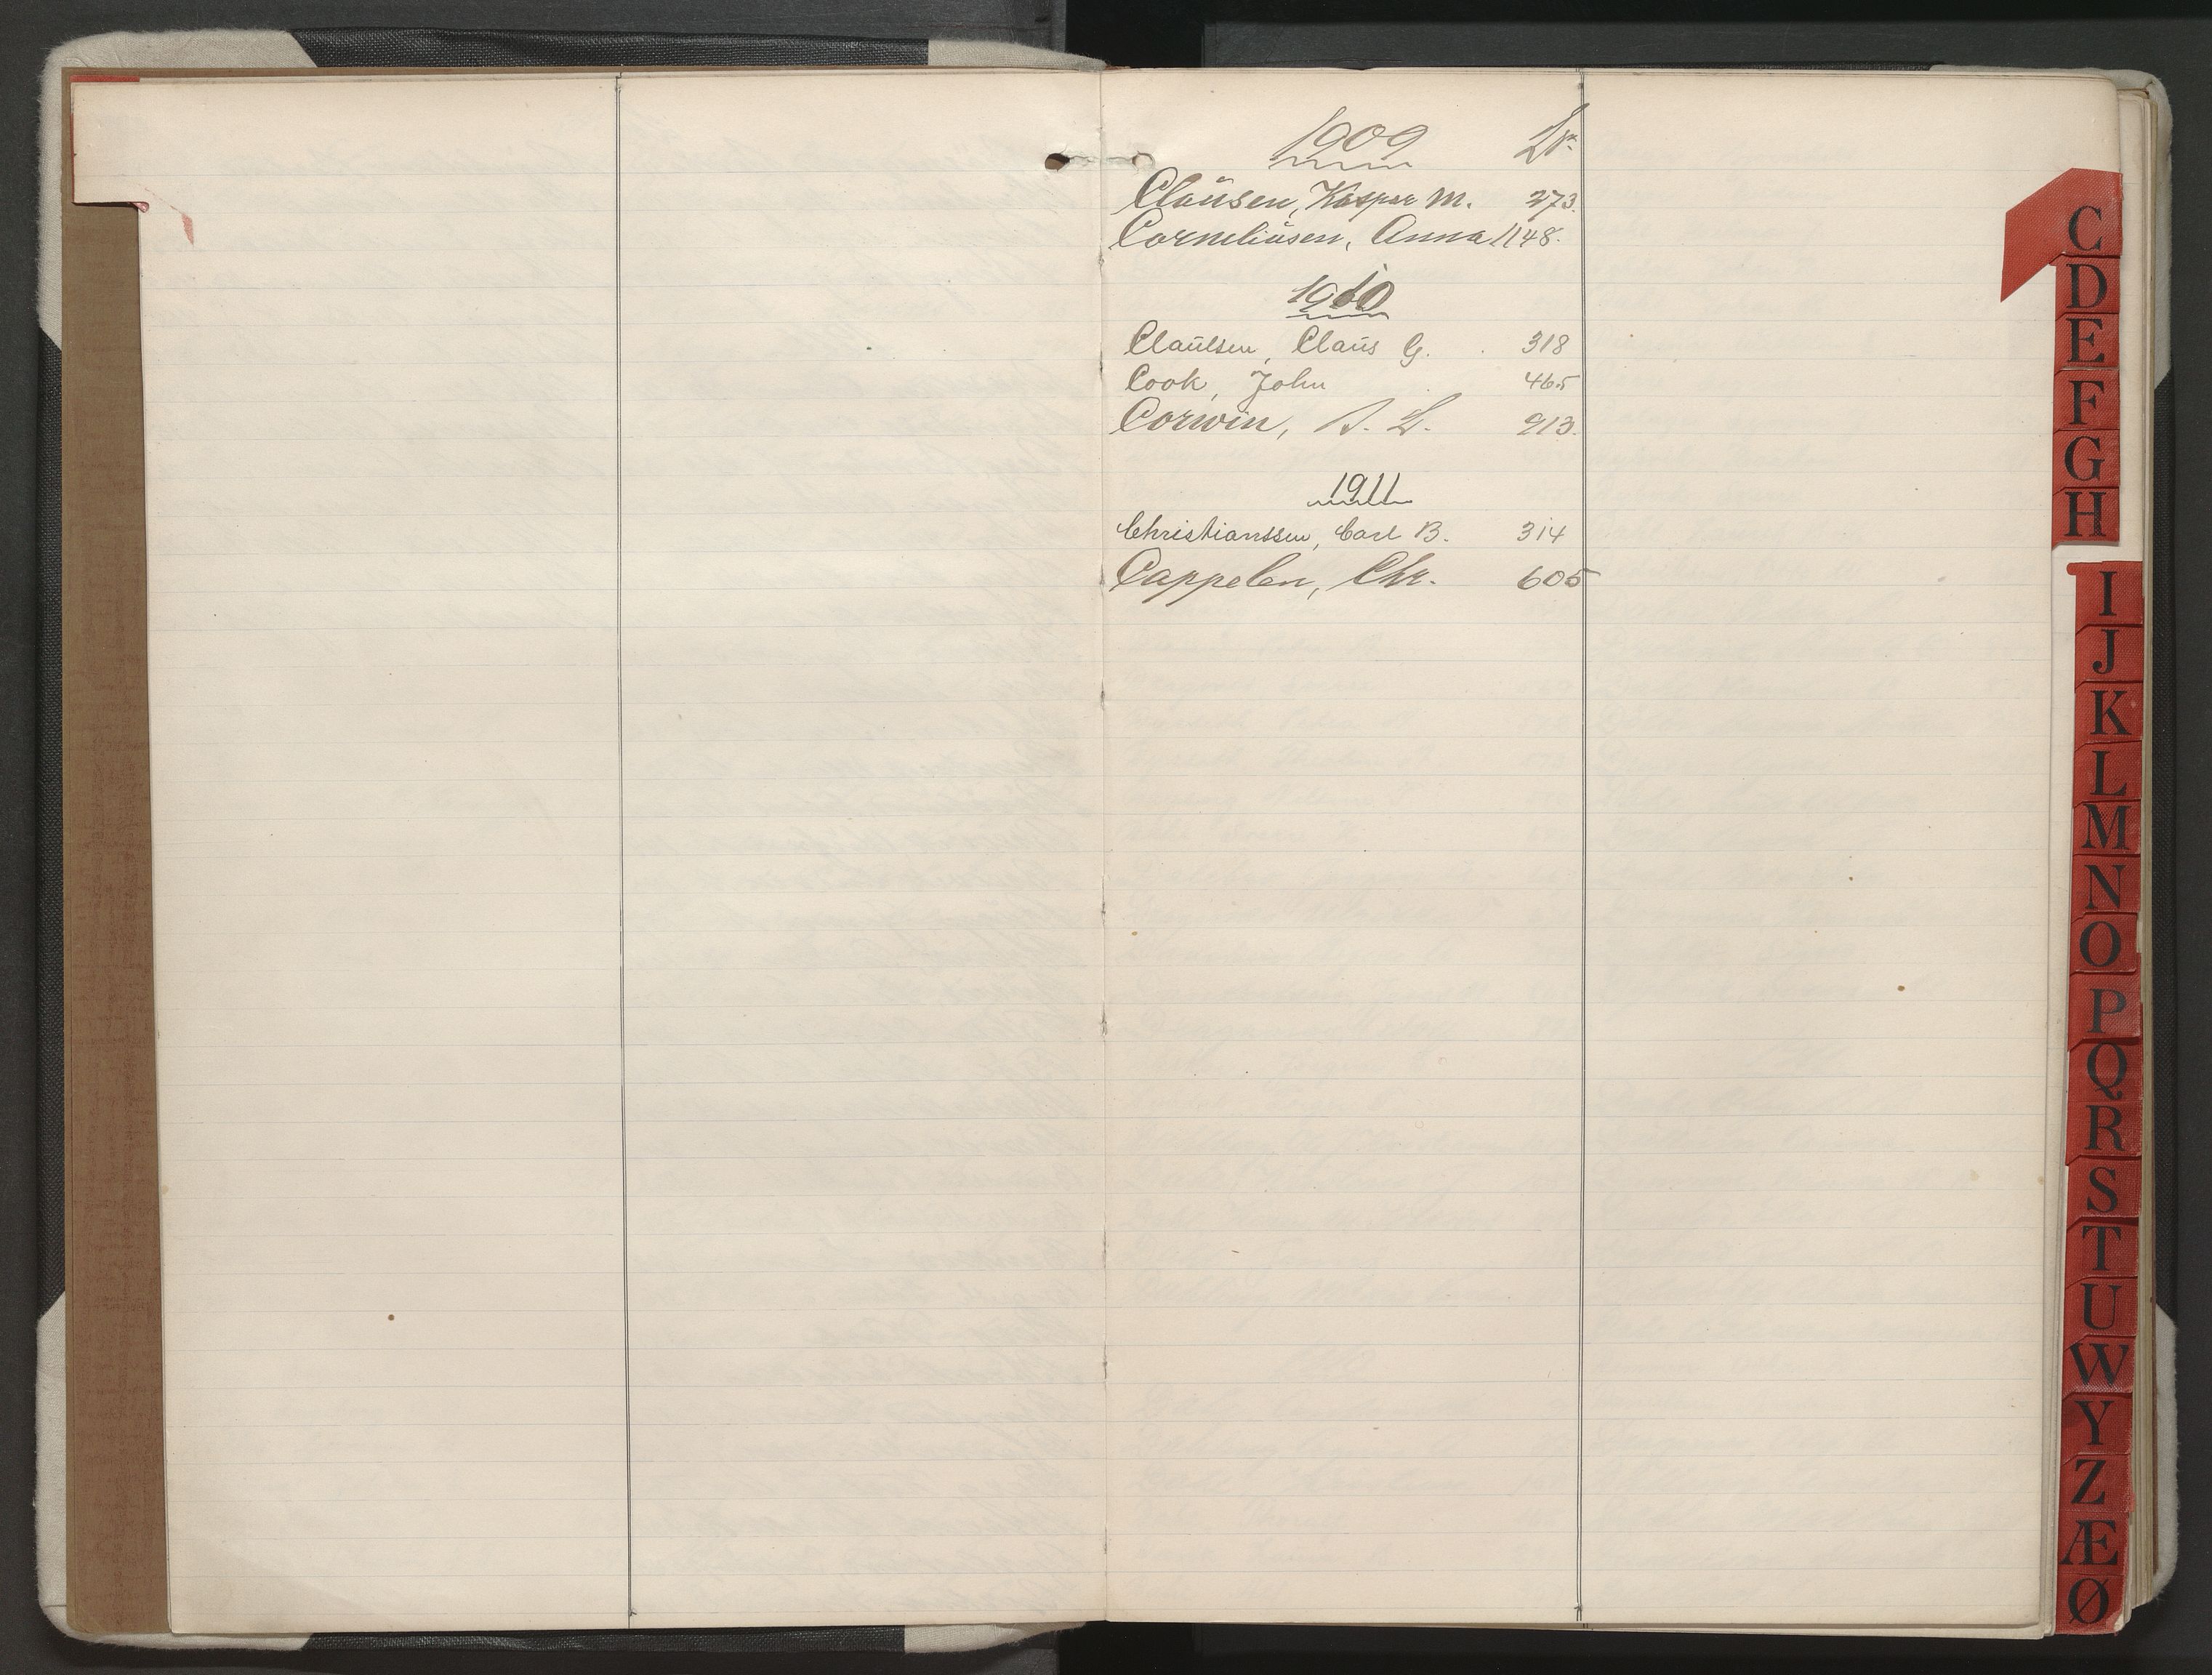 1909 Nr.
Claüsen, Kaspar M. 273.
Corneliüsen, Anna 1148.
1910
Claüssen, Claüs G. 318
Cook, John 465
Corwin, A. L. 913.
1911
Christianssen, Carl B. 314
Cappelen, Chr. 605
C
D
E
F
G
H
I
J
K
L
M
N
O
P
Q
R
S
T
U
W
Y
Z
Æ
Ø